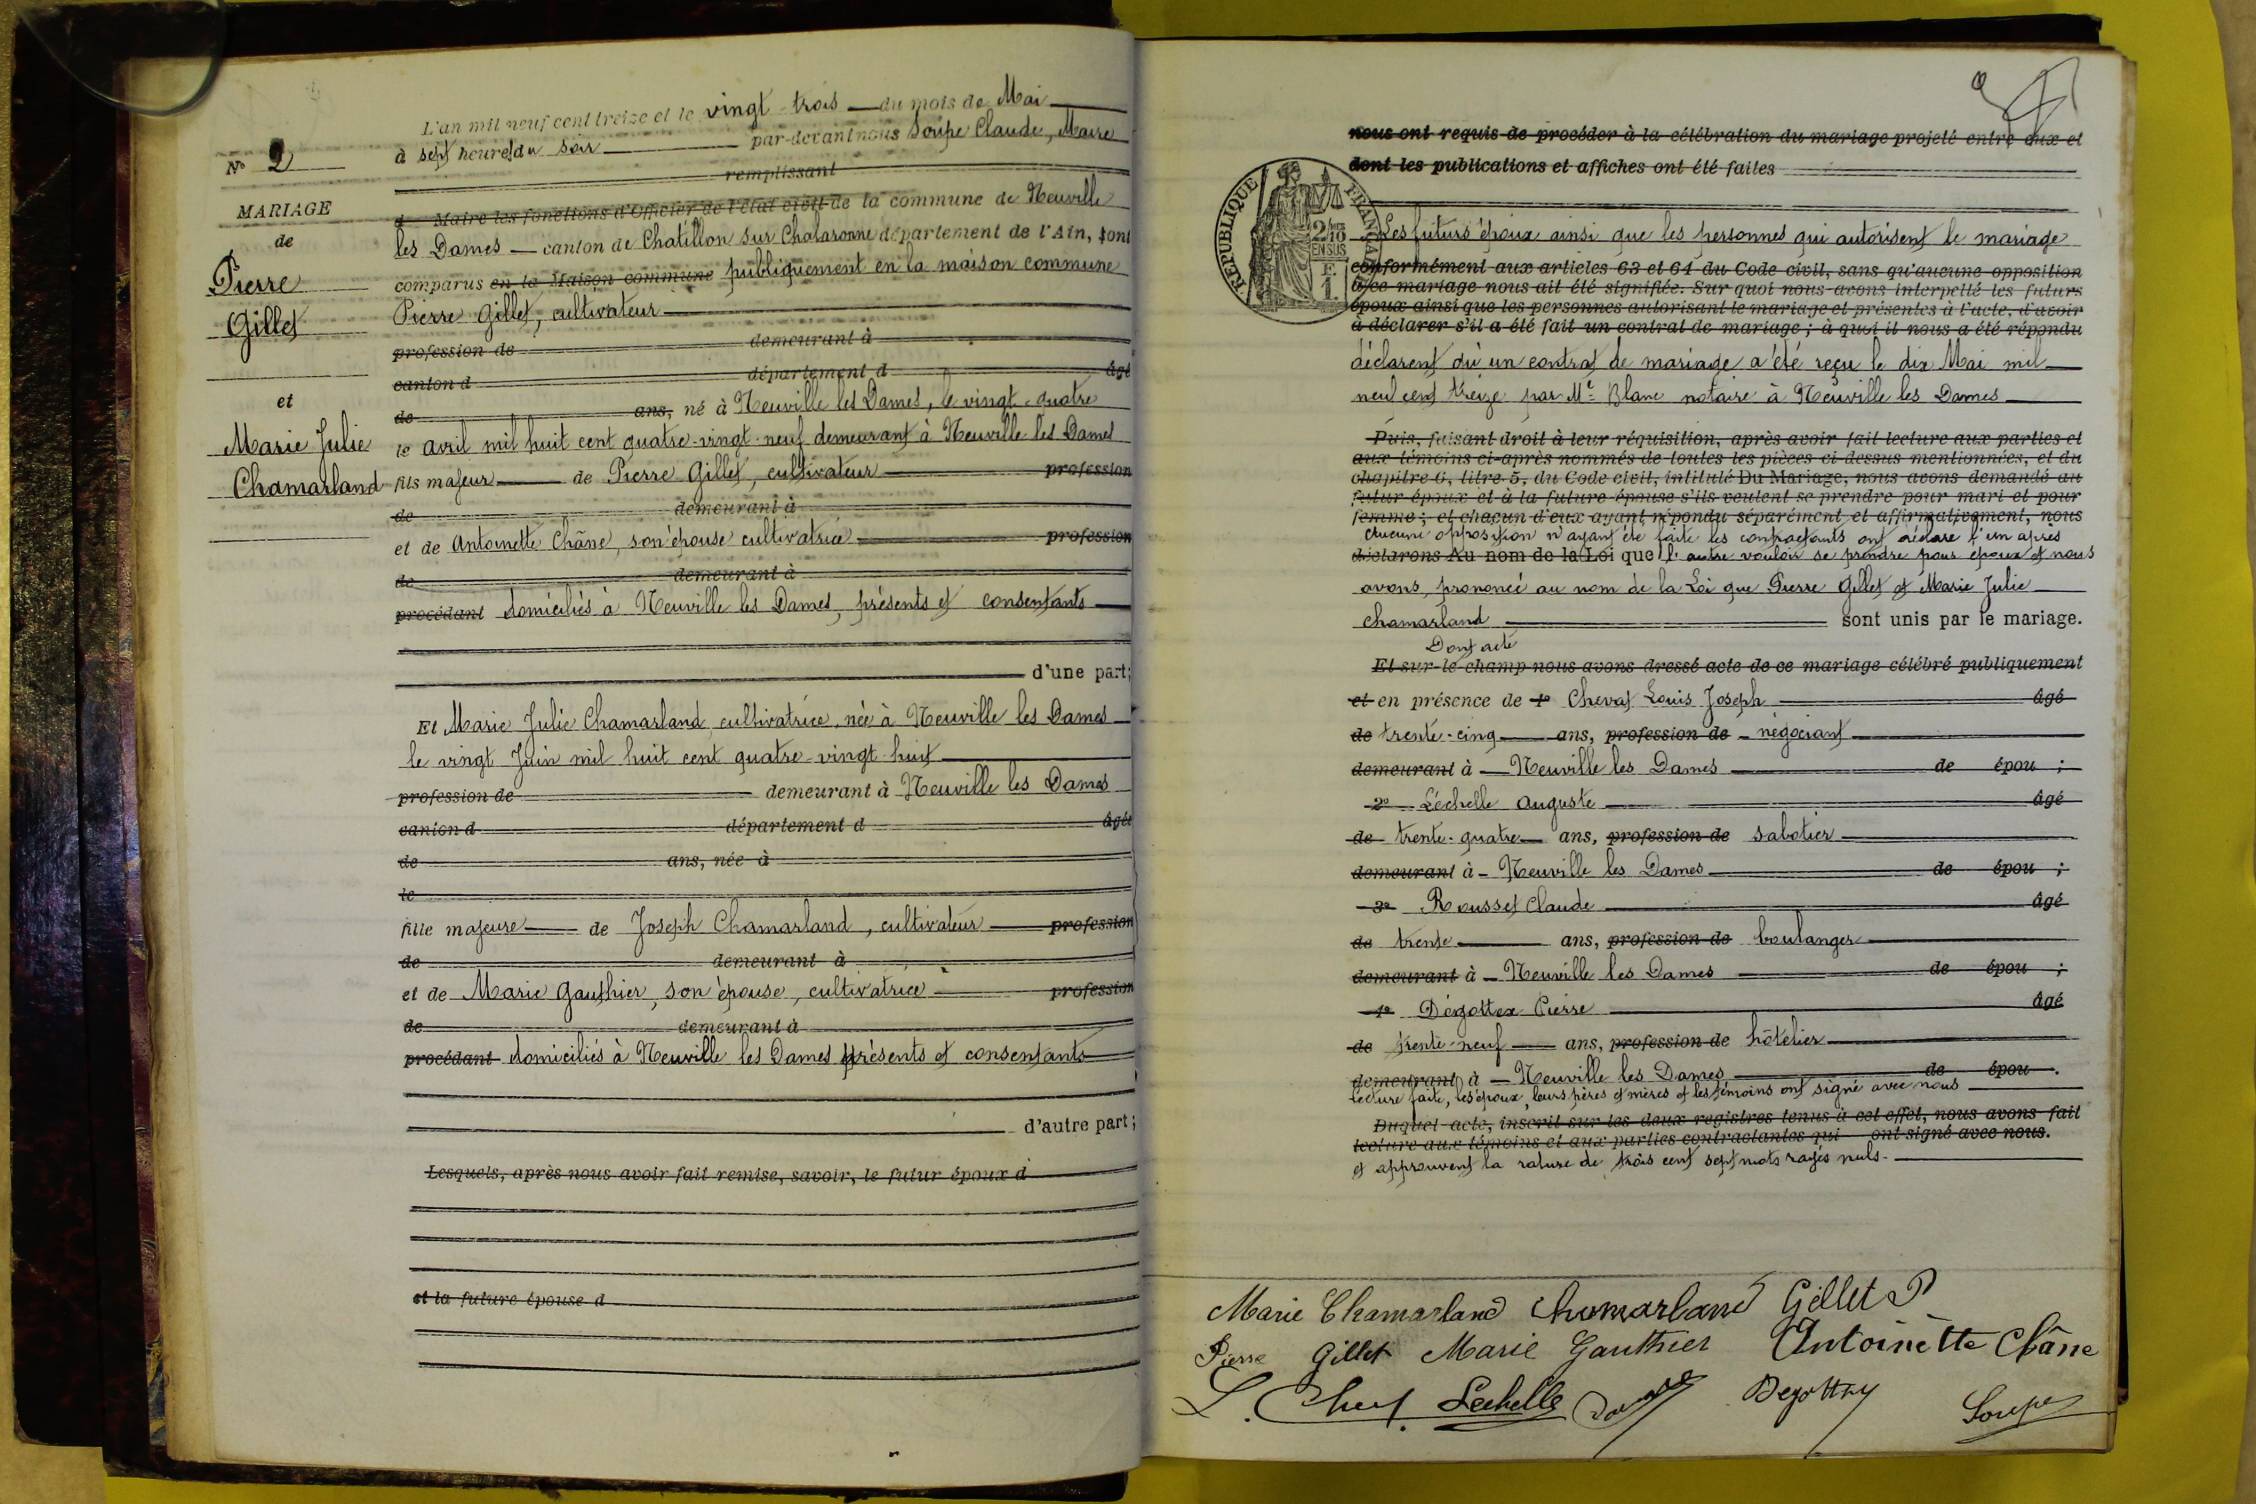 N° 2
MARIAGE
de
Pierre
Gillet
et
Marie Julie
Chamarland
L'an mil neuf cent treize et le vingt-trois du mois de Mai
à sept heures du soir par-devant nous Soupe Claude, Maire
remplissant
d Maire les fonctions d'Officier de l'état civil de la commune de Neuville
les Dames canton de Chatillon sur Chalaronne département de l'Ain, sont
comparus en la Maison commune publiquement en la maison commune
Pierre Gillet, cultivateur
profession de demeurant à
canton d département d âgé
de ans, né à Neuville les Dames, le vingt-quatre
le avril mil huit cent quatre-vingt-neuf demeurant à Neuville les Dames
fils majeur de Pierre Gillet, cultivateur profession
de demeurant à
et de Antoinette Châne, son épouse cultivatrice profession
de demeurant à
procédant domiciliés à Neuville les Dames, présents et consentants
d'une part;
Et Marie Julie Chamarland, cultivatrice, née à Neuville les Dames
le vingt Juin mil huit cent quatre-vingt-huit
profession de demeurant à Neuville les Dames
canton d département d âgée
de ans, née à
le
fille majeure de Joseph Chamarland, cultivateur profession
de demeurant à
et de Marie Gauthier, son épouse, cultivatrice profession
de demeurant à
procédant domiciliés à Neuville les Dames présents et consentants
d'autre part;
Lesquels, après nous avoir fait remise, savoir, le futur époux d
et la future épouse d
nous ont requis de procéder à la célébration du mariage projeté entre eux et
dont les publications et affiches ont été faites
RÉPUBLIQUE FRANÇAISE
2/10
EN SUS
F.
1.
Les futurs époux ainsi que les personnes qui autorisent le mariage
conformément aux articles 63 et 64 du Code civil, sans qu'aucune opposition
à ce mariage nous ait été signifiée. Sur quoi nous avons interpellé les futurs
époux ainsi que les personnes autorisant le mariage et présentes à l'acte, d'avoir
à déclarer s'il a été fait un contrat de mariage; à quoi il nous a été répondu
déclarent qu'un contrat de mariage a été reçu le dix Mai mil
neuf cent treize par Me Blanc notaire à Neuville les Dames
Puis, faisant droit à leur réquisition, après avoir fait lecture aux parties et
aux témoins ci-après nommés de toutes les pièces ci-dessus mentionnées, et du
chapitre 6, titre 5, du Code civil, intitulé Du Mariage, nous avons demandé au
futur époux et à la future épouse s'ils veulent se prendre pour mari et pour
femme; et chacun d'eux ayant répondu séparément et affirmativement, nous
Aucune opposition n'ayant été faite les contractants ont déclaré l'un après
déclarons Au nom de la Loi que l'autre vouloir se prendre pour époux et nous
avons prononcé au nom de la Loi que Pierre Gillet et Marie Julie
chamarland sont unis par le mariage.
Dont acte
Et sur-le-champ nous avons dressé acte de ce mariage célébré publiquement
et en présence de 1° Chevat Louis Joseph âgé
de trente-cinq ans, profession de négociant
demeurant à Neuville les Dames de épou ;
2° Léchelle Auguste âgé
de trente-quatre ans, profession de sabotier
demeurant à Neuville les Dames de épou ;
3° Rousset Claude âgé
de trente ans, profession de boulanger
demeurant à Neuville les Dames de épou ;
4° Dégottex Pierre âgé
de trente-neuf ans, profession de hôtelier
demeurant à Neuville les Dames de épou .
lecture faite, les époux, leurs pères et mères et les témoins ont signé avec nous
Duquel acte, inscrit sur les deux registres tenus à cet effet, nous avons fait
lecture aux témoins et aux parties contractantes qui ont signé avec nous.
et approuvent la rature de trois cent sept mots rayés nuls.
Marie Chamarland Chamarland Gillet P
Pierre Gillet Marie Gauthier Antoinètte Châne
L. Lechelle Soupe